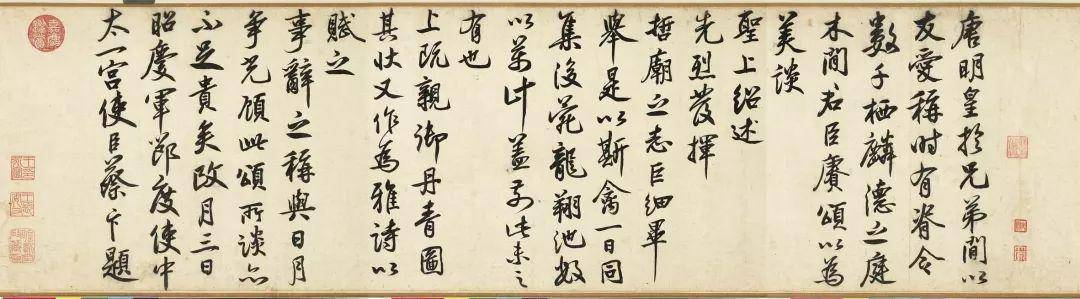 唐明皇於兄弟間以
友愛稱時有脊令
數千栖麟德之庭
木間君臣賡頌以為
美談
聖上紹述
先烈發揮
哲廟之志巨細畢
舉是以斯禽一日同
集後苑龍翔池
以萬計蓋前此未之
有也
上既親御丹青圖
其狀又作為雅詩以
賦之
事辭之稱與日月
爭光顧此頌所談亦
不足貴矣政月三日
昭慶軍節度使中
太一宮使臣蔡卞題